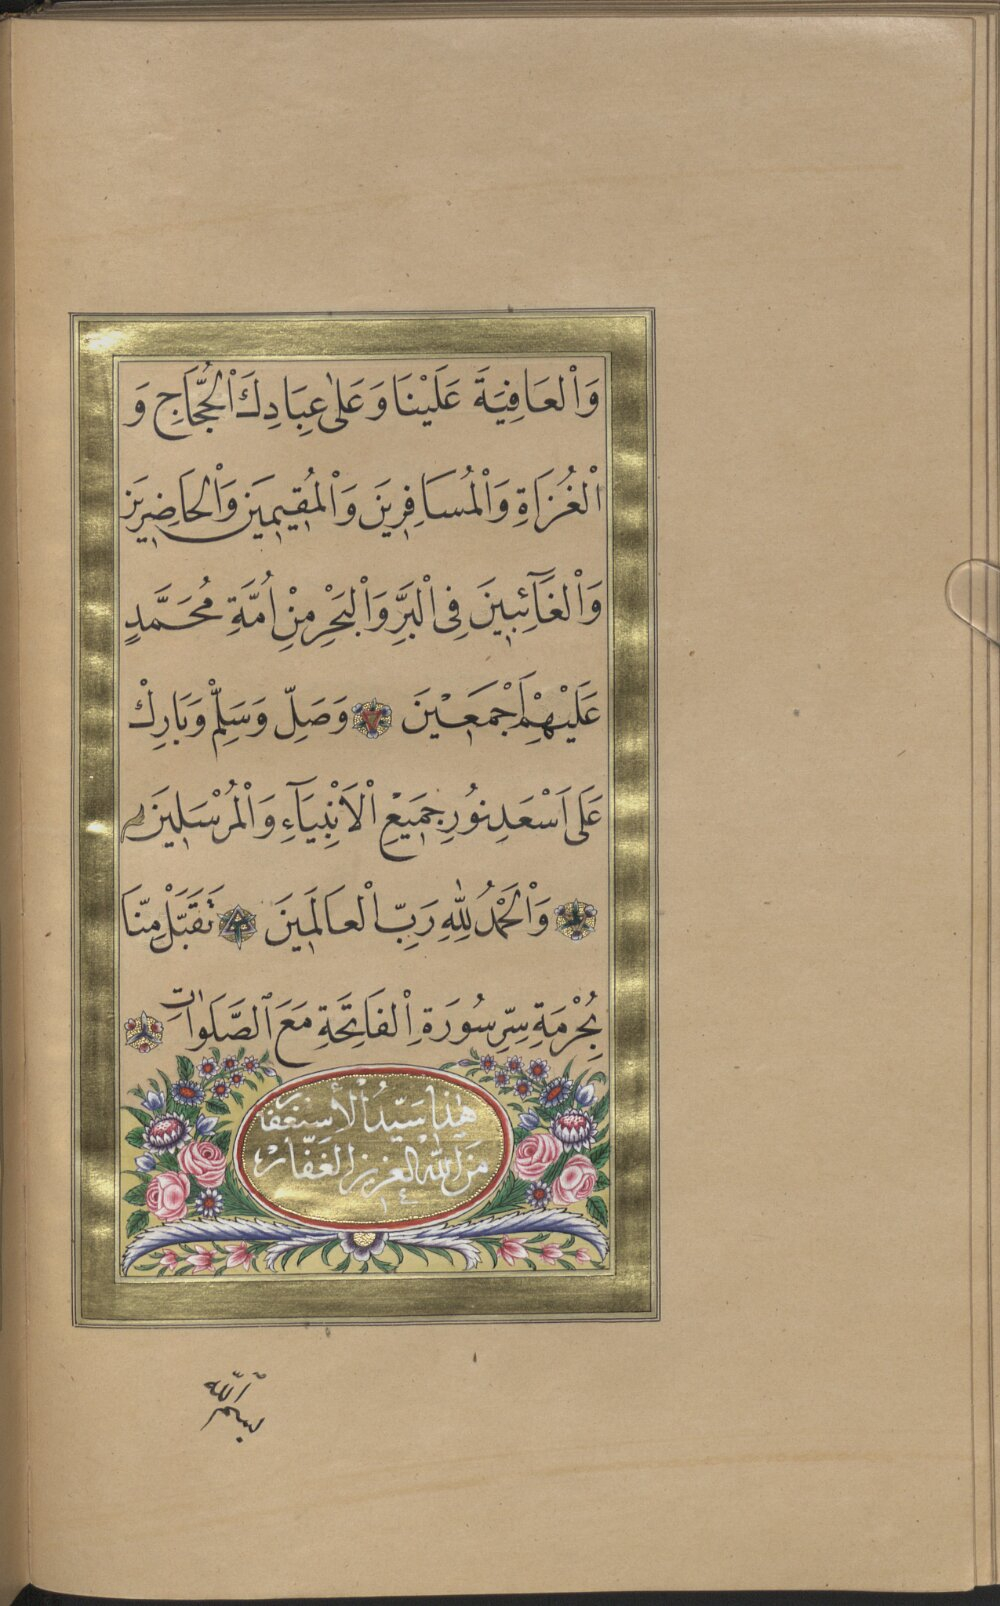 وَالْعَافِيَةَ عَلَيْنَا وَعَلٰى عِبَادِكَ الْحُجَّاجِ وَ
الْغُزَاةِ وَالْمُسَافِرِينَ وَالْمُقِيمِينَ وَالْحَاضِرِينَ
وَالْغَآئِبِينَ فِى الْبَرِّ وَالْبَحْرِ مِنْ اُمَّةِ مُحَمَّدٍ
عَلَيْهِمْ اَجْمَعِينَ وَصَلِّ وَسَلِّمْ وَبَارِكْ
عَلٰى اَسْعَدِ نُورِ جَمِيعِ الْاَنْبِيَآءِ وَالْمُرْسَلِينَ
وَالْحَمْدُ لِلّٰهِ رَبِّ الْعَالَمِينَ تَقَبَّلْ مِنَّا
بِحُرْمَةِ سِرِّ سُورَةِ الْفَاتِحَةِ مَعَ الصَّلَوَاتِ
هٰذَا سَيِّدُ الْأستغفار
مِنَ اللّٰهِ الْعزيز الغَفَّار
بسم الله